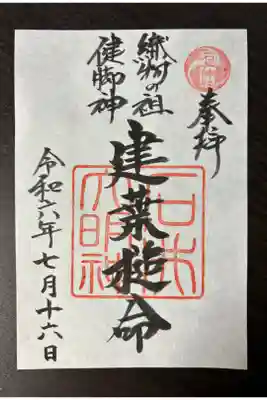 奉拝
織物の祖
健脚神
建葉槌命
令和六年七月十六日